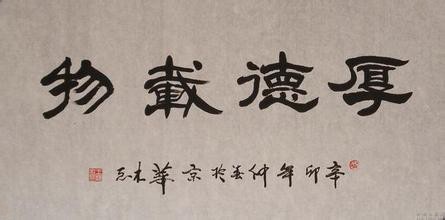 厚德載物
辛卯年仲春於京